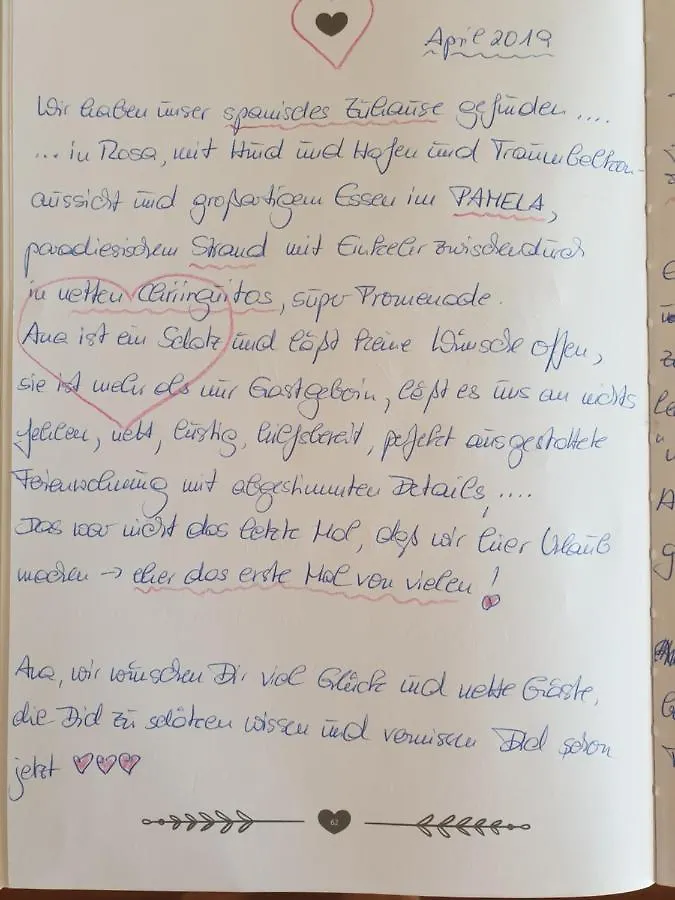 April 2019
Wir haben unser spanisches Zuhause gefunden ....
... in Rosa, mit Hund und Hafen und Traumbalkon-
aussicht und großartigem Essen im PAMELA,
paradiesischem Strand mit Einkehr zwischendurch
in netten Chiringuitos, super Promenade.
Ana ist ein Schatz und läßt keine Wünsche offen,
sie ist mehr als nur Gastgeberin, läßt es uns an nichts
fehlen, nett, lustig, hilfsbereit, perfekt ausgestattete
Ferienwohnung mit abgestimmten Details, ....
Das war nicht das letzte Mal, daß wir hier Urlaub
machen → eher das erste Mal von vielen!
Ana, wir wünschen Dir viel Glück und nette Gäste,
die Dich zu schätzen wissen und vermissen Dich schon
jetzt ♡♡♡
62